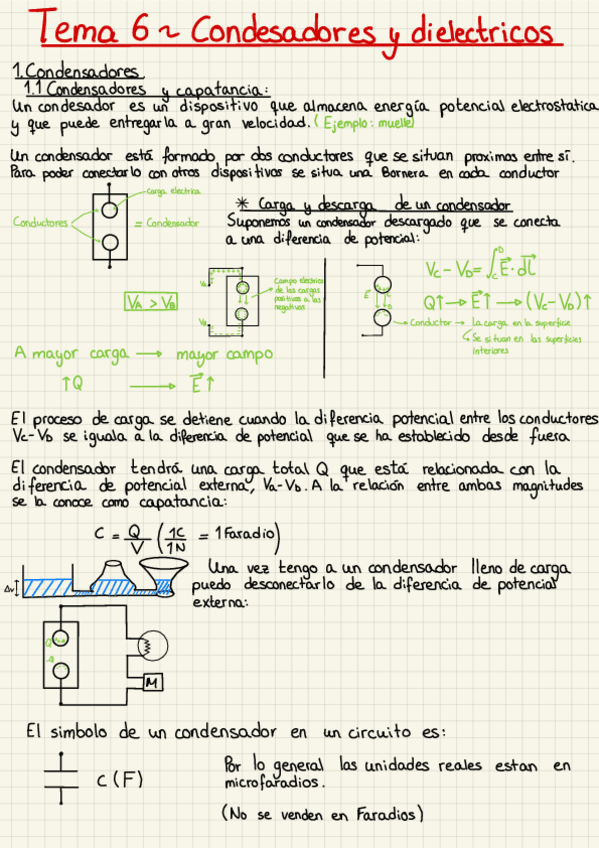 Tema 6 ~ Condesadores y dielectricos
1. Condensadores
1.1 Condensadores y capatancia:
Un condesador es un dispositivo que almacena energía potencial electrostatica
y que puede entregarla a gran velocidad. (Ejemplo: muelle)
Un condensador está formado por dos conductores que se situan proximos entre sí.
Para poder conectarlo con otros dispositivos se situa una Bornera en cada conductor
Carga electrica
Conductores
= Condensador
* Carga y descarga de un condensador
Suponemos un condensador descargado que se conecta
a una diferencia de potencial:
VA > VB
Campo electrico
de las cargas
positivas a las
negativas
Vc - VD = ∫ E · dl
Q↑ → E↑ → (Vc - VD)↑
Conductor → la carga en la superficie
Se situan en las superficies
interiores
A mayor carga → mayor campo
↑Q → E↑
El proceso de carga se detiene cuando la diferencia potencial entre los conductores
Vc - VD se iguala a la diferencia de potencial que se ha establecido desde fuera
El condensador tendrá una carga total Q que está relacionada con la
diferencia de potencial externa, VA - VD. A la relación entre ambas magnitudes
se la conoce como capatancia:
C = Q/V (1C/1N = 1 Faradio)
Δv
Una vez tengo a un condensador lleno de carga
puedo desconectarlo de la diferencia de potencial
externa:
Q
M
El simbolo de un condensador en un circuito es:
C (F)
Por lo general las unidades reales estan en
microfaradios.
(No se venden en Faradios)